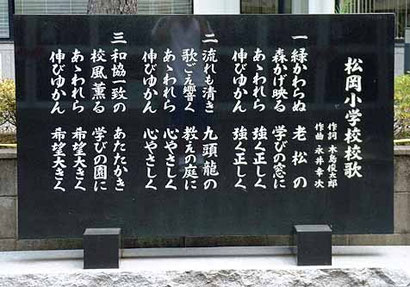 松岡小学校校歌
作詞 木島俊太郎
作曲 永井幸次
一 緑かわらぬ 老松の
森かげ映る 学びの窓に
あゝわれら 強く正しく
伸びゆかん 強く正しく
二 流れも清き 九頭龍の
歌ごえ響く 教えの庭に
あゝわれら 心やさしく
伸びゆかん 心やさしく
三 和協一致の あたたかき
校風薫る 学びの園に
あゝわれら 希望大きく
伸びゆかん 希望大きく